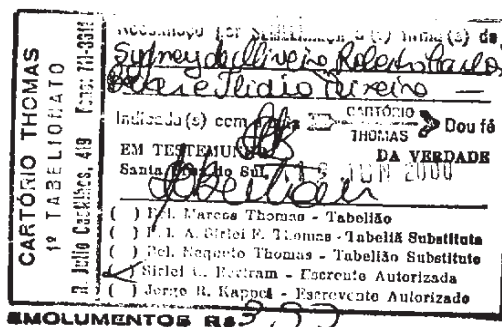 CARTÓRIO THOMAS
1º TABELIONATO
R. Julio Castilhos, 419 Fone: 711-3511
Reconheço por Semelhança a(s) firma(s) de
Sydney de Oliveira Roberto Carlos
Ilidio Teixeira —
Indicada(s) com CARTÓRIO THOMAS Dou fé
EM TESTEMUNHO DA VERDADE
Santa Cruz do Sul, JUN 2000
( ) Bel. Marcos Thomas - Tabelião
( ) Bel. A. Sirlei F. Thomas - Tabeliã Substituta
( ) Bel. Thomas - Tabelião Substituto
Sirlei Bertram - Escrevente Autorizada
( ) Jorge R. Kappel - Escrevente Autorizado
EMOLUMENTOS R$